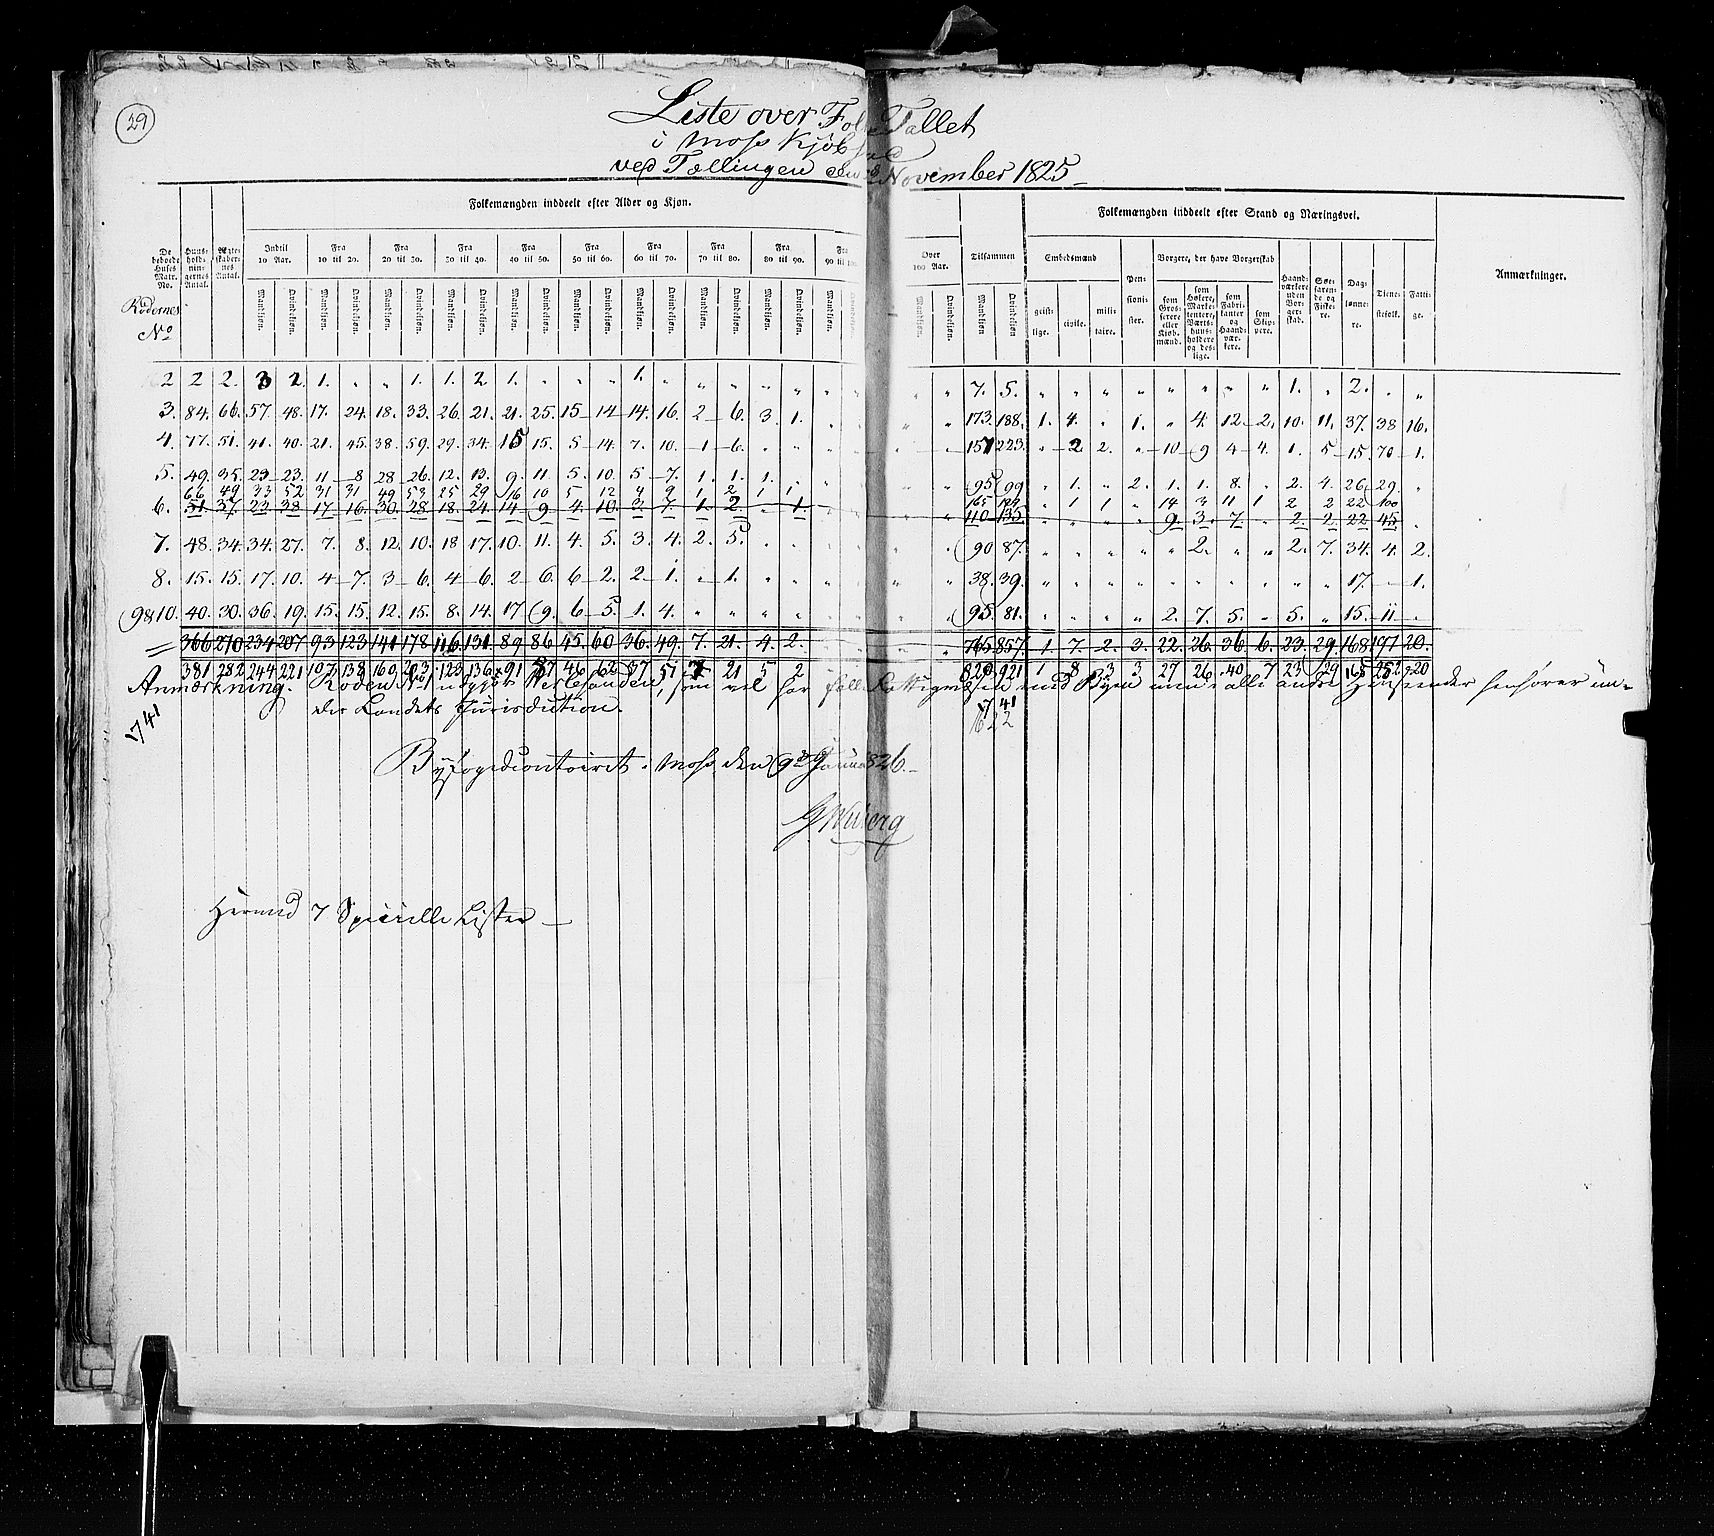 29
Liste over Folke Tallet
i Moss Kjøbstad
ved Tællingen den November 1825
De beboede Huses Matr. No.
Rodernes No
Huusholdningernes Antal.
Ægteskabernes Antal.
Folkemængden inddeelt efter Alder og Kjøn.
Indtil 10 Aar. Fra 10 til 20. Fra 20 til 30. Fra 30 til 40. Fra 40 til 50. Fra 50 til 60. Fra 60 til 70. Fra 70 til 80. Fra 80 til 90. Fra 90 til 100. Over 100 Aar. Tilsammen
Mandkjøn. Qvindekjøn.
Folkemængden inddeelt efter Stand og Næringsvei.
Embedsmænd
geistlige. civile. militaire.
Pensionister.
Borgere, der have Borgerskab
som Grosserere eller Kjøbmænd.
som Høkere, Marketentere, Værtshuusholdere og deslige.
som Fabrikanter og Haandværkere.
som Skippere.
Haandværkere uden Borgerskab.
Søefarende og Fiskere.
Daglønnere.
Tienestefolk.
Fattige.
Anmærkninger.
2 2 2. 3 2. 1. „ „ 1. 1. 2. 1. „ „ „ 1. „ „ „ „ „ 7. 5. „ „ „ „ „ „ „ „ 1. „ 2. „ „
3. 84. 66. 57. 48. 17. 24. 18. 33. 26. 21. 21. 25. 15 14 14. 16. 2 6. 3 1. 173. 188. 1. 4. „ 1. „ 4. 12 2. 10. 11. 37. 38 16.
4. 77. 51. 41. 40. 21. 45. 38. 59. 29. 34. 15 15. 5 14. 7. 10. 1 6. „ „ 157 223. „ 2 2. „ 10 9 4 4. 1. 5 15. 70 1.
5. 49. 35. 23 23. 11 8 28 26. 12. 13. 9. 11. 5. 10. 5 7. 1. 1. 1. „ 95 99 „ 1. „ 2. 1. 1. 8. „ 2. 4. 26 29. „
66 49 33 52 31 31 49 53 25 29 16 10 5 12 4 9 1 2 1 1 165 „ 1 1 „ 14 3 11 1 2 2 22 100
6. 51. 37. 23 38 17 16. 30. 28 18. 24. 14 9 4. 10. 3. 7. 1. 2. „ 1. 110 135. „ „ „ „ 9. 3. 7. „ 2. 2. 22 45 „
7. 48. 34. 34. 27. 7. 8. 12. 10. 18 17. 10. 11. 4. 5. 3. 4. 2. 5. „ „ 90 87. „ „ „ „ „ 2. „ „ 2. 7. 34. 4. 2.
8. 15. 15. 17. 10. 4 7. 3 6. 4 6. 2 6. 6 2. 2 1. „ 1. „ „ 38. 39. „ „ „ „ „ „ „ „ „ „ 17. „ 1.
9&10. 40. 30. 36. 19. 15. 15. 12. 15. 8. 14. 17 9. 6 5. 1. 4. „ „ „ „ 95. 81. „ „ „ „ 2. 7. 5. „ 5. „ 15. 11. „
366 270 234 207 93 123 141 178 116. 131. 89 86 45. 60 36. 49. 7. 21. 4. 2. 765. 857. 1. 7. 2. 3. 22. 26. 36. 6. 23. 29. 168 197 20.
381 282 244 221 107 138 160 203 123 136 91 87 46 62 37 51 7 21 5 2 820 921 1 8 3 3 27 26 40 7 23 29 168 252 20
Anmærkning. Roden No 1 udgjør Værlesanden, som vel har fælles Fattigvæsen med Byen men i alle andre Henseender henhører un-
der Landets Jurisdiction.
1741
1741
1622
Byfogedcontoiret i Moss den 9de Januar 1826.
Hermed 7 Specielle Lister